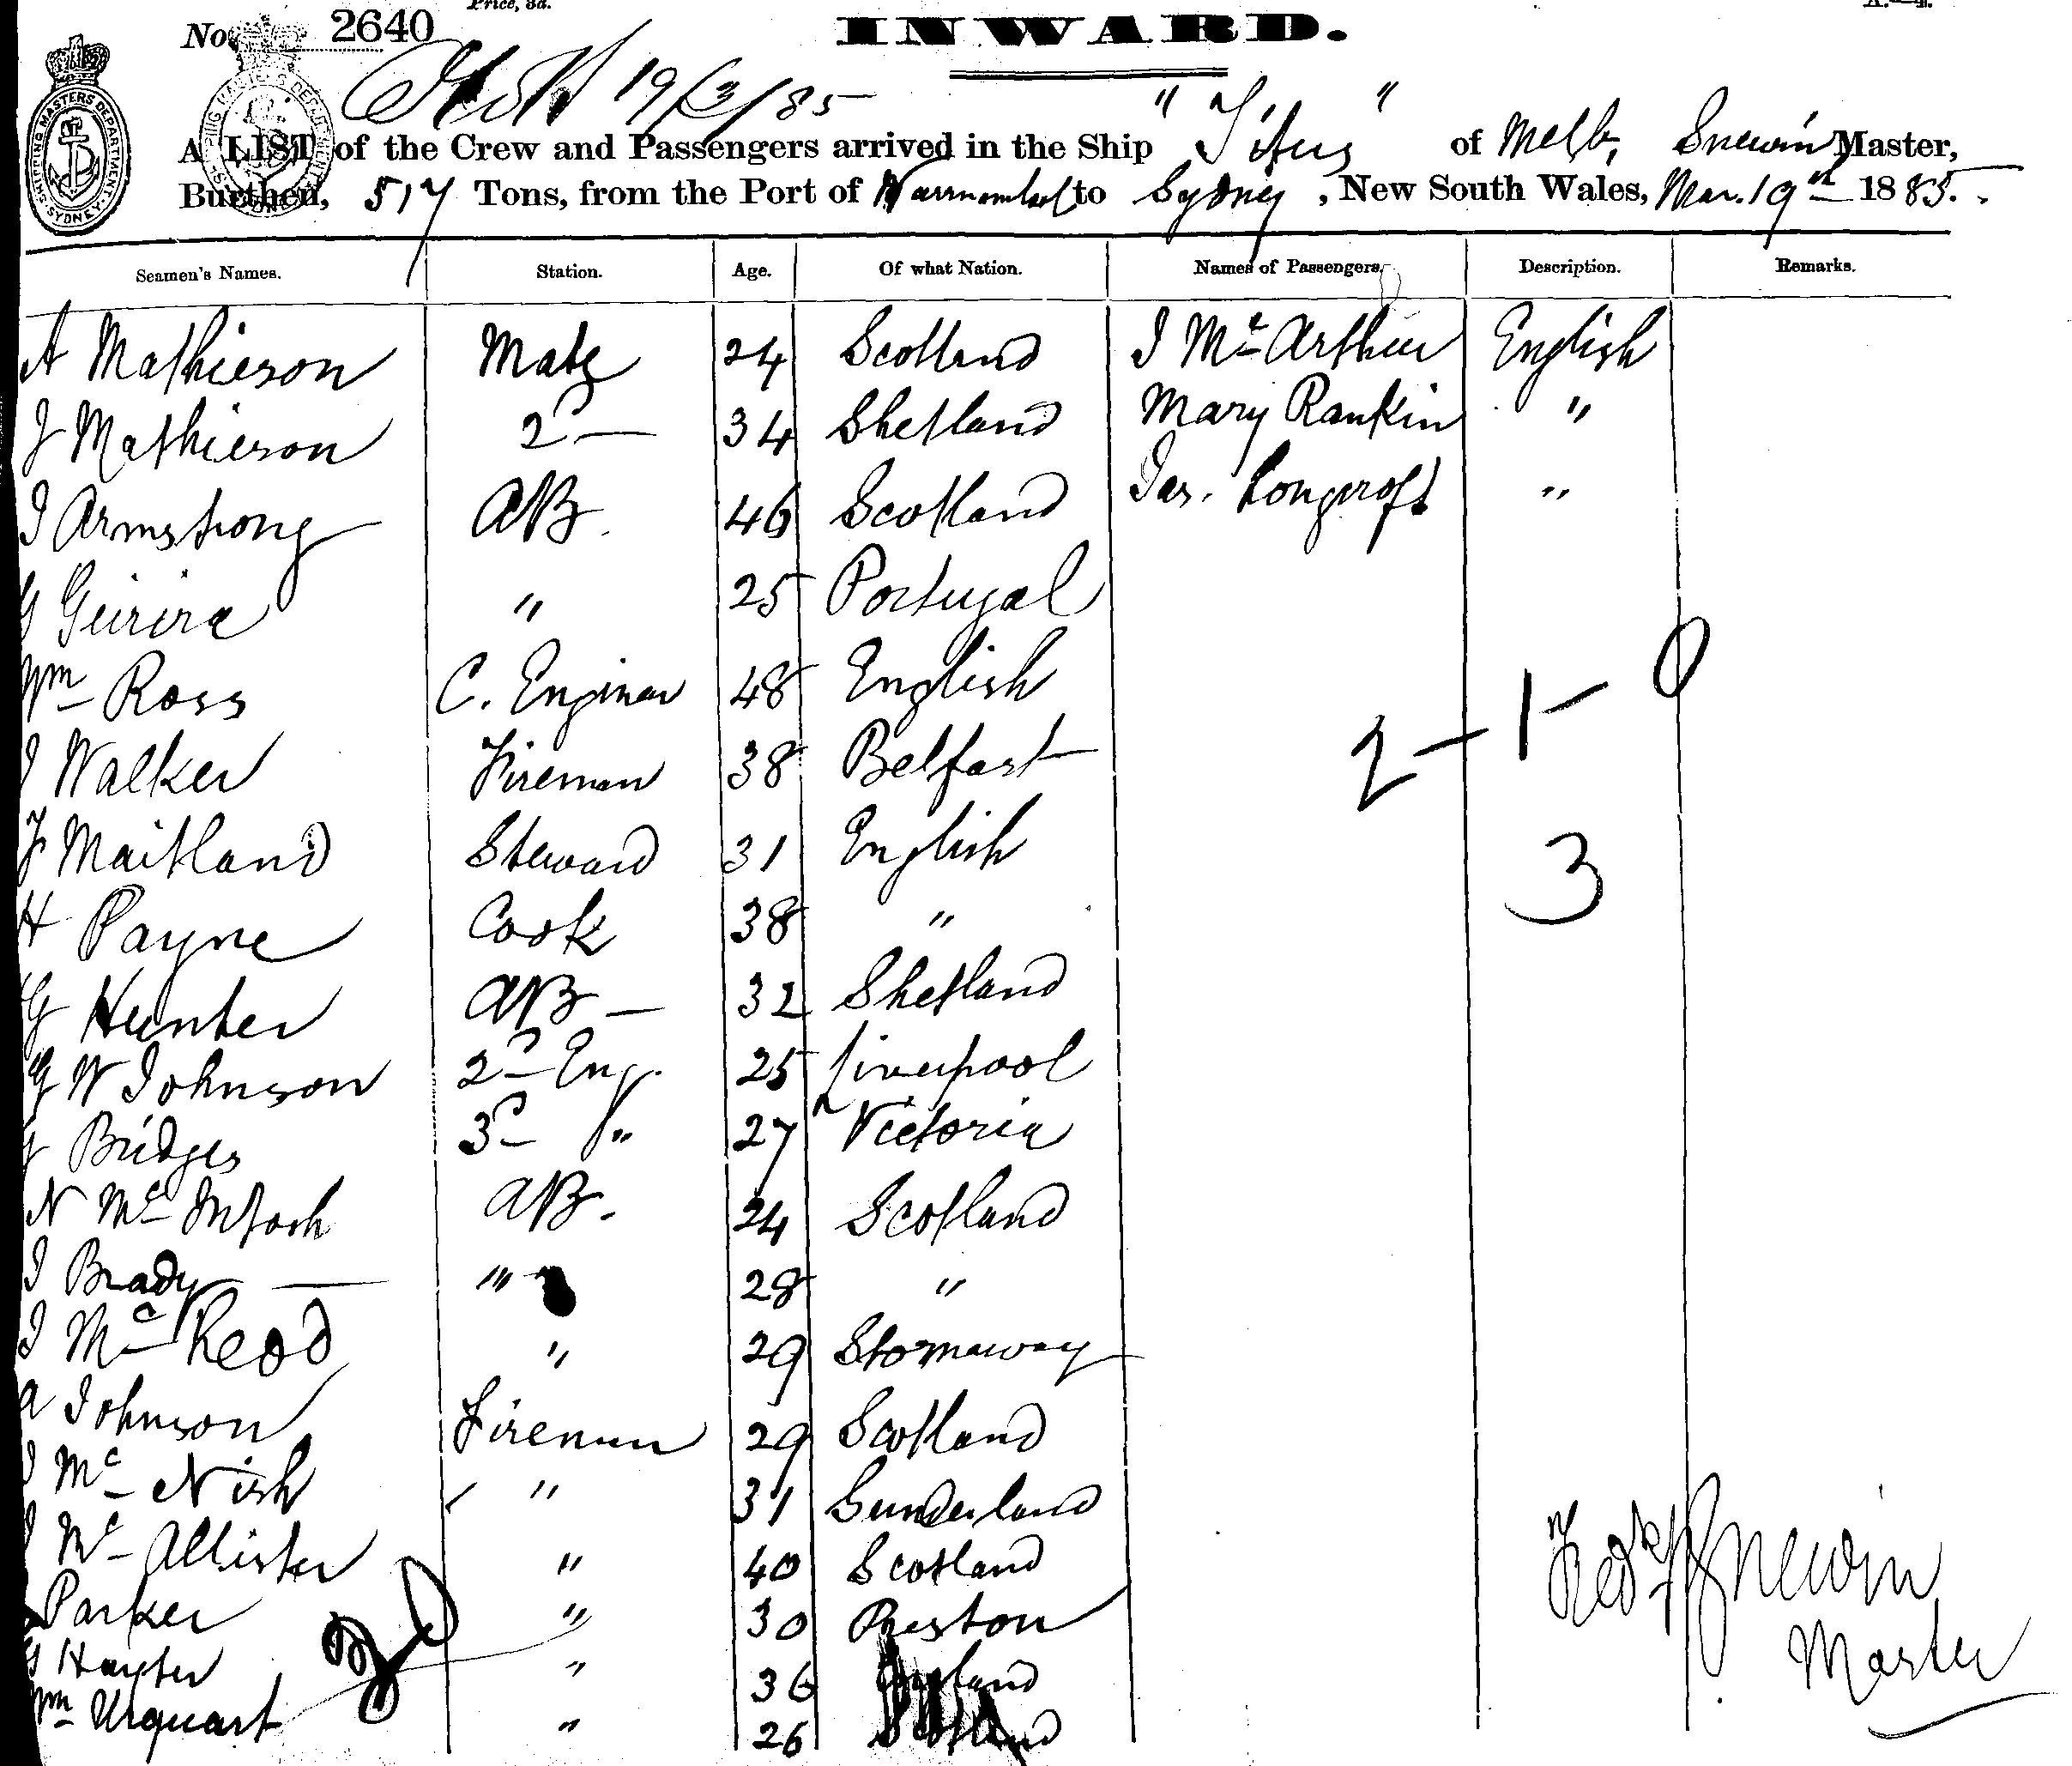 Price, 3d.
No. 2640
INWARD.
19/3/85
A LIST of the Crew and Passengers arrived in the Ship " Titus " of Melb, Snewin Master,
Burthen, 517 Tons, from the Port of Warrnambool to Sydney, New South Wales, Mar. 19th 1885.
SHIPPING MASTERS DEPARTMENT
SYDNEY
Seamen's Names. Station. Age. Of what Nation. Names of Passengers. Description. Remarks.
A Mathieson Mate 24 Scotland J Mc Arthur English
J Mathieson 2d 34 Shetland Mary Rankin "
J Armstrong AB. 46 Scotland Jas. Longcroft "
G " 25 Portugal
Wm Ross C. Engineer 48 English
J Walker Fireman 38 Belfast
2 - 1 - 0
F Maitland Steward 31 English
3
H Payne Cook 38 "
G Hunter AB 32 Shetland
G W Johnson 2d Eng. 25 Liverpool
Bridges 3d " 27 Victoria
N Mc Intosh AB. 24 Scotland
J Brady " 28 "
J Mc Leod " 29 Stornaway
A Johnson Fireman 29 Scotland
J Mc Nish " 31 Sunderland
J Mc Allister " 40 Scotland
Parker " 30 Preston
Fredk Snewin
Hayter " 36 England
Master
Wm Urquart " 26 Scotland